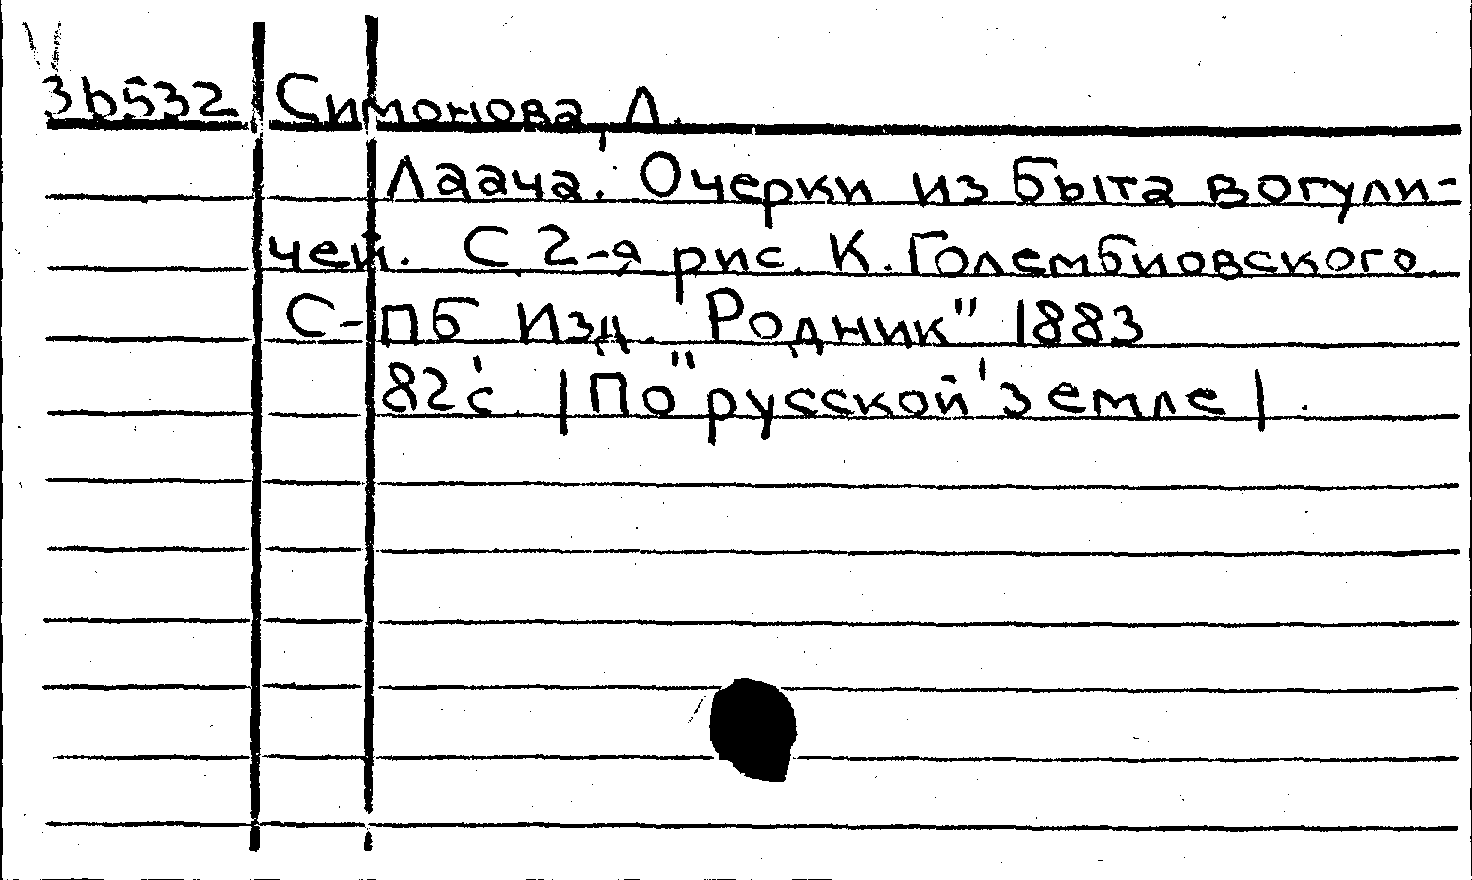 3b532 Симонова, Л.
Лаача. Очерки из быта вогули-
чей. С 2-я рис. К. Голембиовского.
С-ПБ Изд. "Родник" 1883
82 с. |По русской земле|.